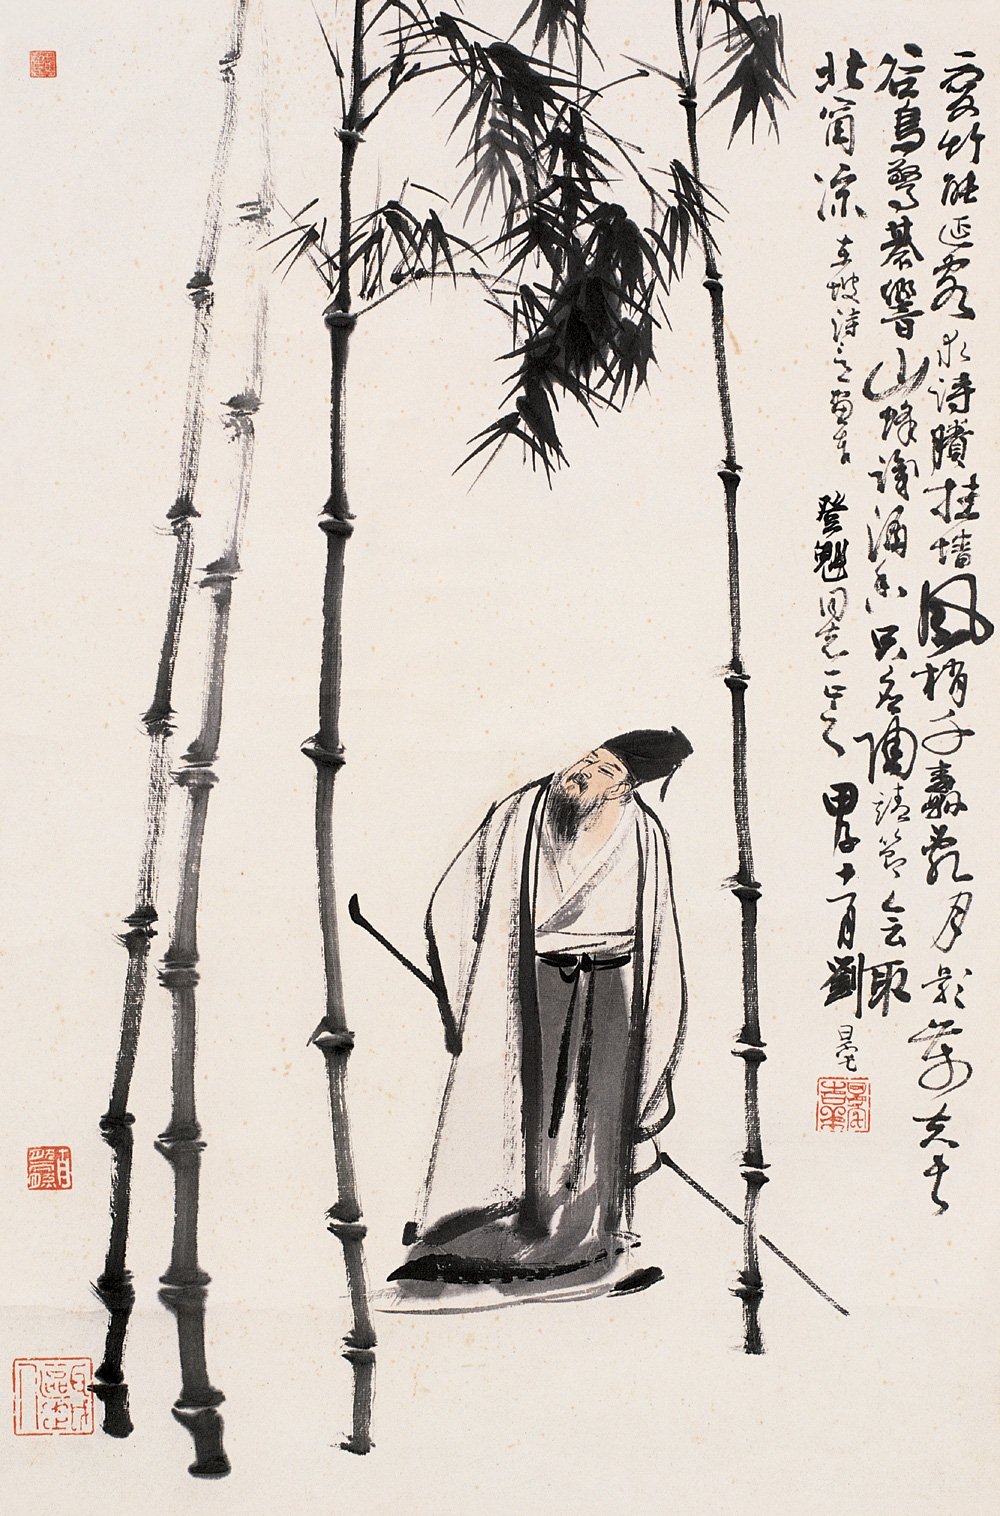 愛竹能延客求詩賸挂墻風梢千纛亂月影萬夫長
谷鳥驚棊響山蜂識酒香只應陶靖節會取
北窗凉東坡詩意畫奉登魁同志正之甲子十月劉旦宅